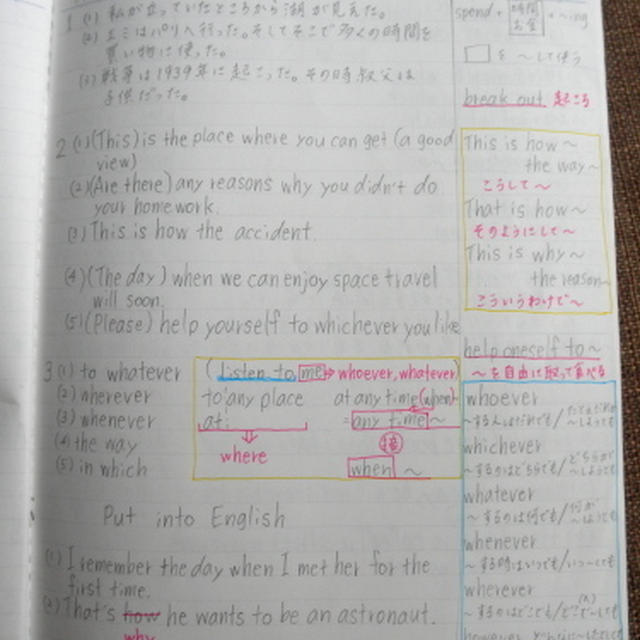 1 (1) 私が立っていたところから湖が見えた。
(2) エミはパリへ行った。そしてそこで多くの時間を
買い物に使った。
(3) 戦争は1939年に起こった。その時叔父は
子供だった。
2 (1)(This) is the place where you can get (a good
view)
(2)(Are there) any reasons why you didn't do
your homework.
(3) This is how the accident.
(4)(The day) when we can enjoy space travel
will soon.
(5)(Please) help yourself to whichever you like
3 (1) to whatever
(2) wherever
(3) whenever
(4) the way
(5) in which
(listen to me → whoever, whatever)
to any place
at
⇓
where
at any time (when)
= any time ~
接
when ~
Put into English
(1) I remember the day when I met her for the
first time.
(2) That's how he wants to be an astronaut.
why
spend + 時間 お金 + ~ing
を ~して使う
break out 起こる
This is how~
the way~
こうして~
That is how~
そのようにして~
This is why~
the reason~
こういうわけで~
help oneself to~
~を自由に取って食べる
whoever
~する人はだれでも/
whichever
~するのはどちらでも/どちらが
whatever
~するのは何でも/何が
whenever
~する時はいつでも/いつ~しても
wherever
~するのはどこでも/どこで~しても
however